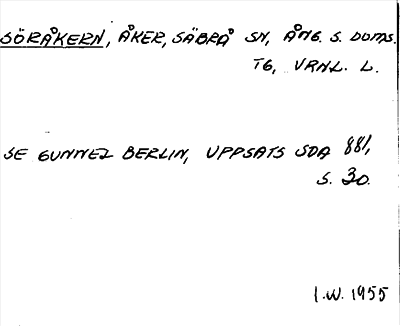 SÖRÅKERN, ÅKER, SÄBRÅ SN, ÅNG. S. DOMS.
TG, VRNL. L.
SE GUNNEL BERLIN, UPPSATS SOA 881,
S. 30.
I.W. 1955